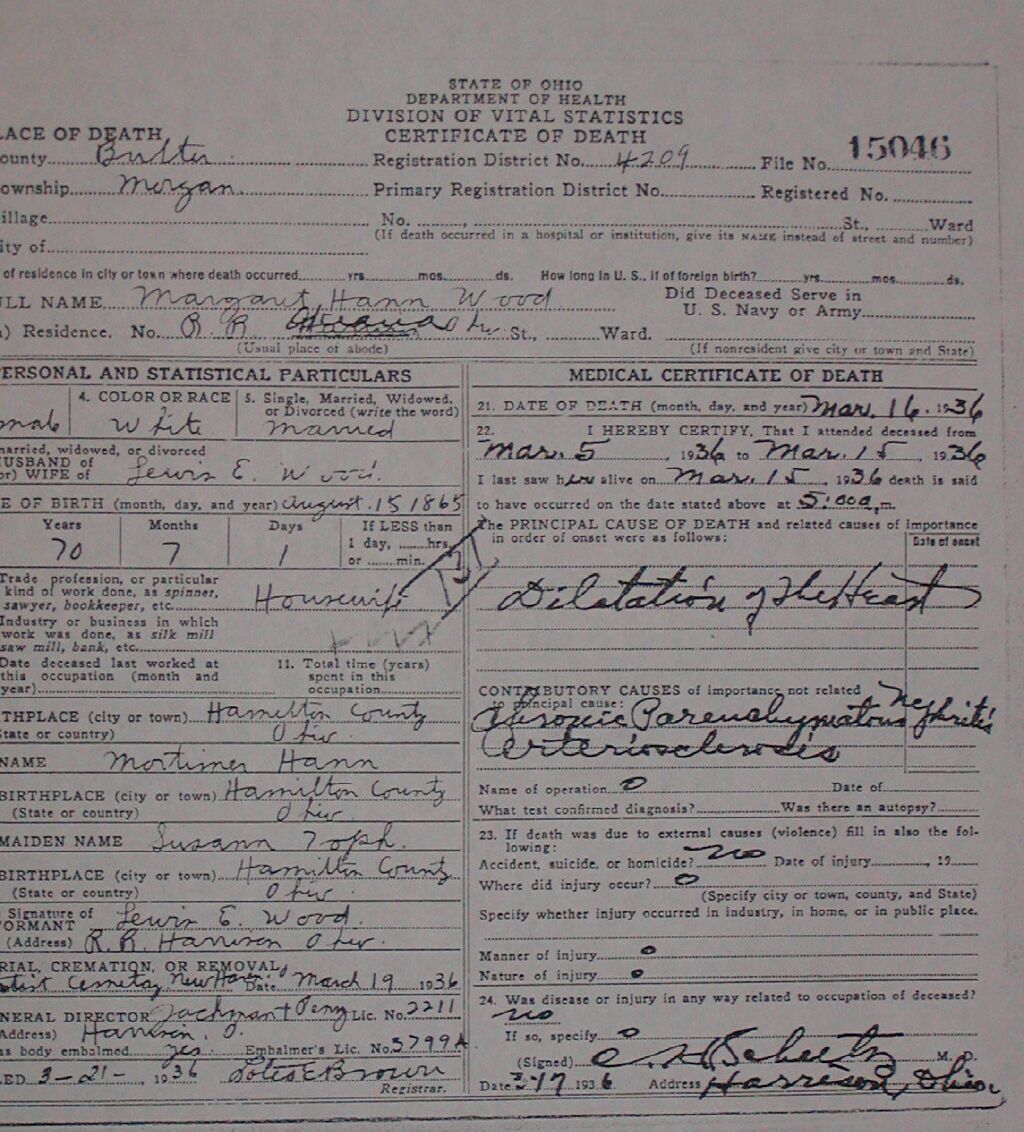 STATE OF OHIO
DEPARTMENT OF HEALTH
DIVISION OF VITAL STATISTICS
CERTIFICATE OF DEATH
LACE OF DEATH
ounty Butler Registration District No. 4209 File No. 15046
ownship Morgan Primary Registration District No. Registered No.
illage No. , St., Ward
(If death occurred in a hospital or institution, give its NAME instead of street and number)
ity of
of residence in city or town where death occurred yrs. mos. ds. How long in U. S., if of foreign birth? yrs. mos. ds.
ULL NAME Margaret Hann Wood Did Deceased Serve in
U. S. Navy or Army
) Residence. No. R. R. St., Ward.
(Usual place of abode) (If nonresident give city or town and State)
ERSONAL AND STATISTICAL PARTICULARS
4. COLOR OR RACE 5. Single, Married, Widowed,
or Divorced (write the word)
White Married
married, widowed, or divorced
HUSBAND of
or) WIFE of Lewis E. Wood.
E OF BIRTH (month, day, and year) August. 15 1865
Years Months Days If LESS than
70 7 1 1 day, hrs.
or min.
Trade profession, or particular
kind of work done, as spinner,
sawyer, bookkeeper, etc. Housewife
Industry or business in which
work was done, as silk mill
saw mill, bank, etc.
Date deceased last worked at 11. Total time (years)
this occupation (month and spent in this
year) occupation
THPLACE (city or town) Hamilton County
State or country) Ohio
NAME Mortimer Hann
BIRTHPLACE (city or town) Hamilton County
(State or country) Ohio
MAIDEN NAME Susann
BIRTHPLACE (city or town) Hamilton County
(State or country) Ohio
Signature of
FORMANT Lewis E. Wood.
(Address) R. R. Harrison Ohio.
RIAL, CREMATION, OR REMOVAL
Cemetary New Haven Date March 19 1936
NERAL DIRECTOR Jackman & Lic. No. 2211
Address) Harrison, O.
as body embalmed yes Embalmer's Lic. No. 3799A
LED 3-21-, 1936 Brown
Registrar.
MEDICAL CERTIFICATE OF DEATH
21. DATE OF DEATH (month, day, and year) Mar. 16. 1936
22. I HEREBY CERTIFY, That I attended deceased from
Mar. 5, 1936 to Mar. 15, 1936
I last saw her alive on Mar. 15, 1936 death is said
to have occurred on the date stated above at 5:00a.m.
The PRINCIPAL CAUSE OF DEATH and related causes of importance
in order of onset were as follows: Date of onset
Dilatation of The Heart
CONTRIBUTORY CAUSES of importance not related
to principal cause:
Chronic Parenchymatous Nephritis
Arteriosclerosis
Name of operation 0 Date of
What test confirmed diagnosis? Was there an autopsy?
23. If death was due to external causes (violence) fill in also the fol-
lowing:
Accident, suicide, or homicide? no Date of injury , 19
Where did injury occur? 0
(Specify city or town, county, and State)
Specify whether injury occurred in industry, in home, or in public place.
Manner of injury 0
Nature of injury 0
24. Was disease or injury in any way related to occupation of deceased?
no
If so, specify 0
(Signed) M. D.
Date 3/17 1936 Address Harrison, Ohio.